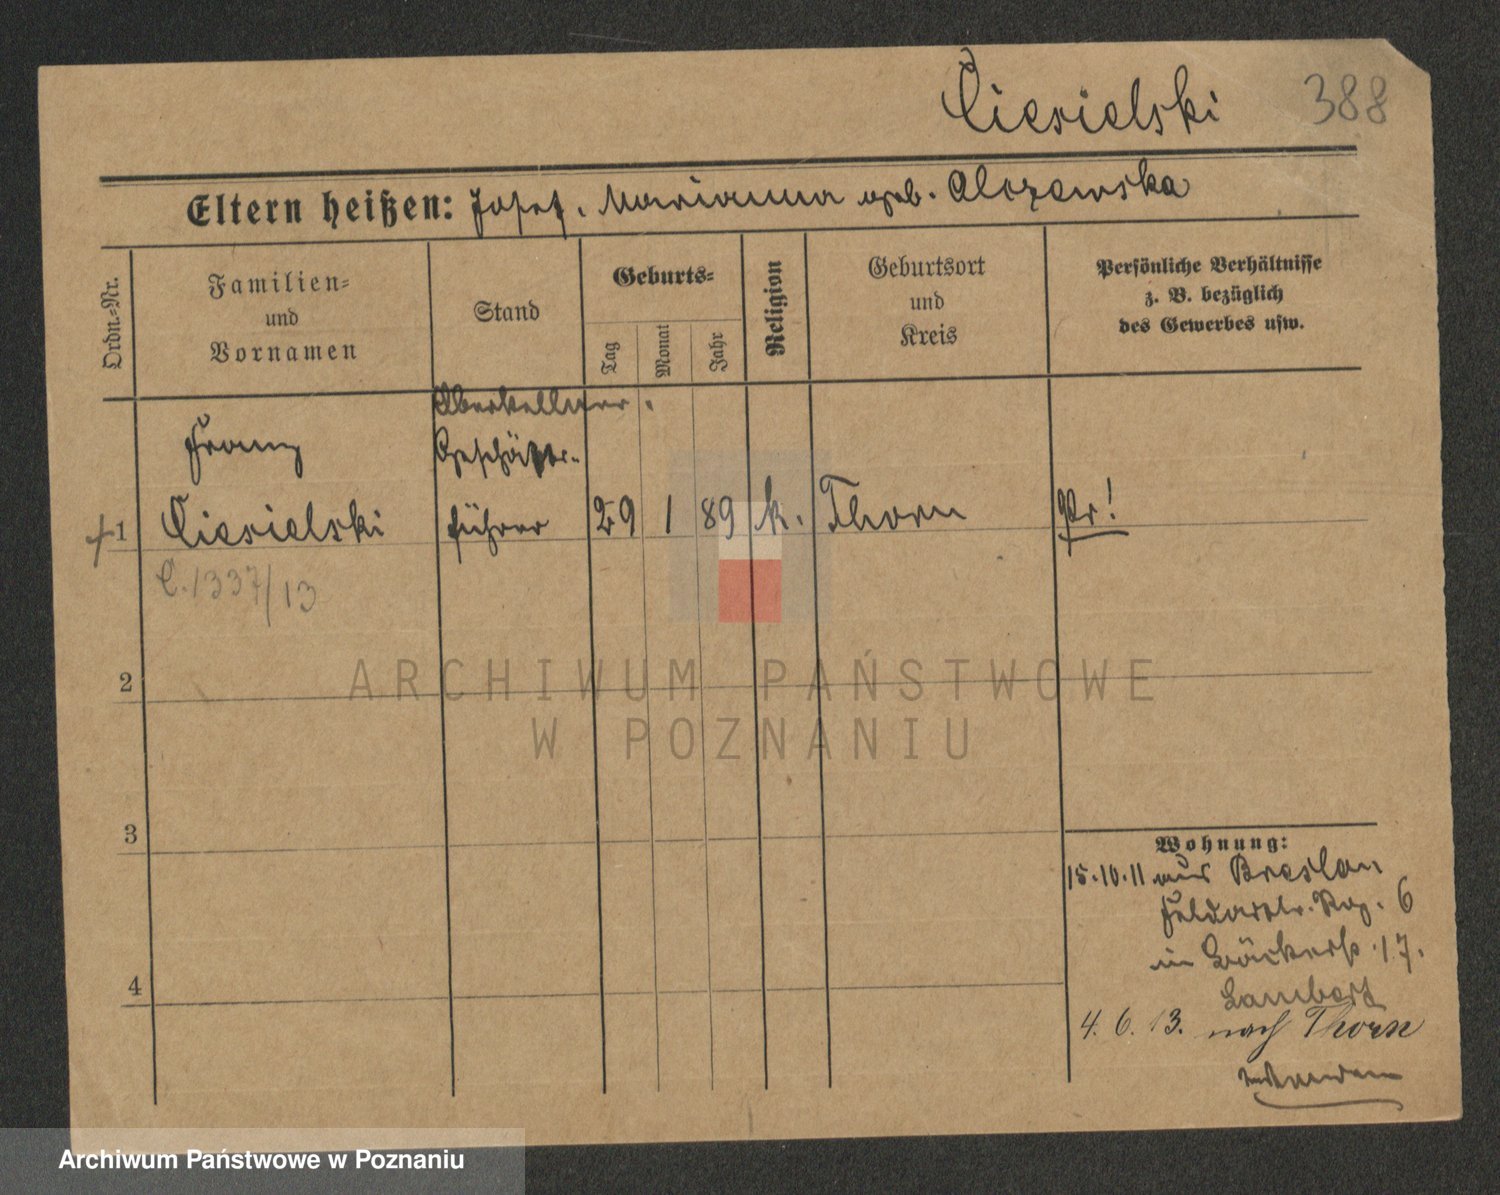 Ciesielski 388
Eltern heißen: Josef, Marianna geb. Olszewska
Ordn.-Nr.
Familien-
und
Vornamen
Stand
Geburts-
Tag
Monat
Jahr
Religion
Geburtsort
und
Kreis
Persönliche Verhältnisse
z. B. bezüglich
des Gewerbes usw.
Oberkellner.
Franz
Geschäfts-
1 Ciesielski führer 29 1 89 k. Thorn Pr!
C.1337/13
2
ARCHIWUM PAŃSTWOWE
W POZNANIU
3
Wohnung:
15.10.11 aus Breslau
6
in Bäckerstr. 17.
4
Lambert
4.6.13. nach Thorn
Archiwum Państwowe w Poznaniu